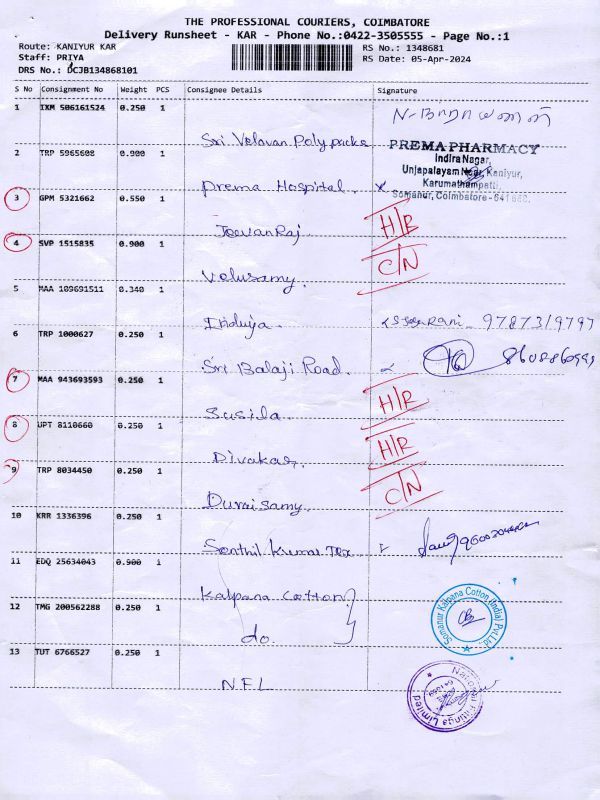 THE PROFESSIONAL COURIERS, COIMBATORE
Delivery Runsheet - KAR - Phone No.:0422-3505555 - Page No.:1
Route: KANIYUR KAR
Staff: PRIYA
DRS No.: DCJB134868101
RS No.: 1348681
RS Date: 05-Apr-2024
S No Consignment No Weight PCS Consignee Details Signature
1 IKM 506161524 0.250 1
Sri Velavan Poly packs
2 TRP 5965608 0.900 1
Prema Hospital.
PREMA PHARMACY
Indira Nagar,
Unjapalayam Near, Kaniyur,
Karumathampatti,
Somanur, Coimbatore - 641 668.
3 GPM 5321662 0.550 1
JeevanRaj. H/R
4 SVP 1515835 0.900 1
Velusamy. C/N
5 MAA 109691511 0.340 1
Induja. Rani 9787319797
6 TRP 1000627 0.250 1
Sri Balaji Road.
7 MAA 943693593 0.250 1
Susila. H/R
8 UPT 8110660 0.250 1
Divakar. H/R
9 TRP 8034450 0.250 1
Duraisamy. C/N
10 KRR 1336396 0.250 1
Senthil Kumar Tex
11 EDQ 25634043 0.900 1
Kalpana Cotton
Somanur Kalpana Cotton (India) Pvt.Ltd.,
12 TMG 200562288 0.250 1
do.
13 TUT 6766527 0.250 1
N.F.L
Fittings Limited